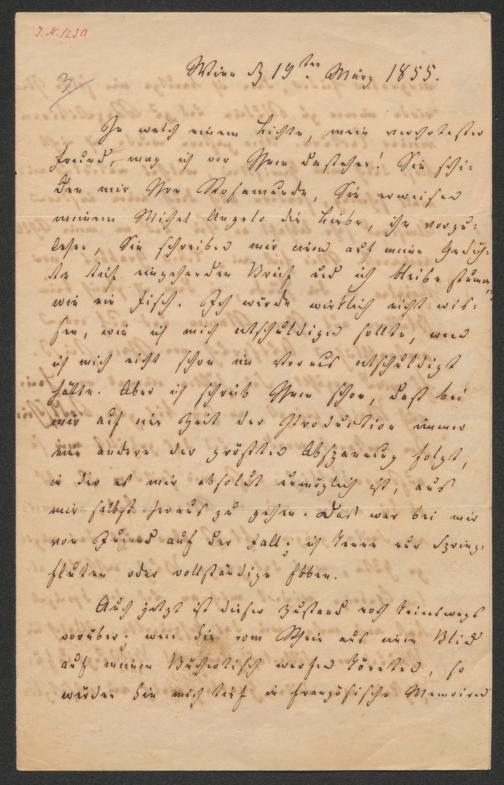 J.N. 1230
3
Wien d 19ten März 1855.
In welch einem Lichte, mein verehrtester
Freund, mag ich vor Ihnen dastehen! Sie sen-
den mir Ihre Rosamunde, Sie erweisen
meinem Michel Angelo die Liebe, ihn vorzu-
lesen, Sie schreiben mir einen auf meine Gedich-
te tief eingehenden Brief und ich bleibe stumm,
wie ein Fisch. Ich würde wirklich nicht wis-
sen, wie ich mich entschuldigen sollte, wenn
ich mich nicht schon im Voraus entschuldigt
hätte. Aber ich schrieb Ihnen schon, daß bei
mir auf eine Zeit der Production immer
eine andere der größten Abspannung folgt,
in der es mir absolut unmöglich ist, aus
mir selbst heraus zu gehen. Das war bei mir
von Jugend auf der Fall; ich kenne nur Spring-
fluten oder vollständige Ebben.
Auch jetzt ist dieser Zustand noch keineswegs
vorüber; wenn Sie vom Rhein aus einen Blick
auf meinen Büchertisch werfen könnten, so
würden Sie mich tief in französische Memoiren